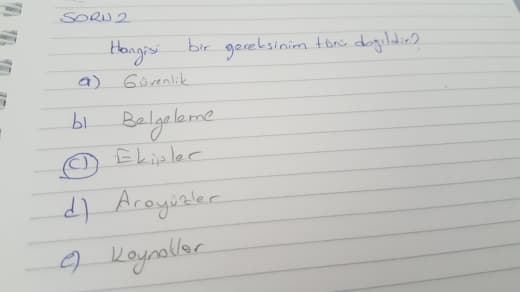 SORU 2
Hangisi bir gereksinim türü değildir?
a) Güvenlik
b) Belgeleme
c) Ekipler
d) Arayüzler
e) Kaynaklar